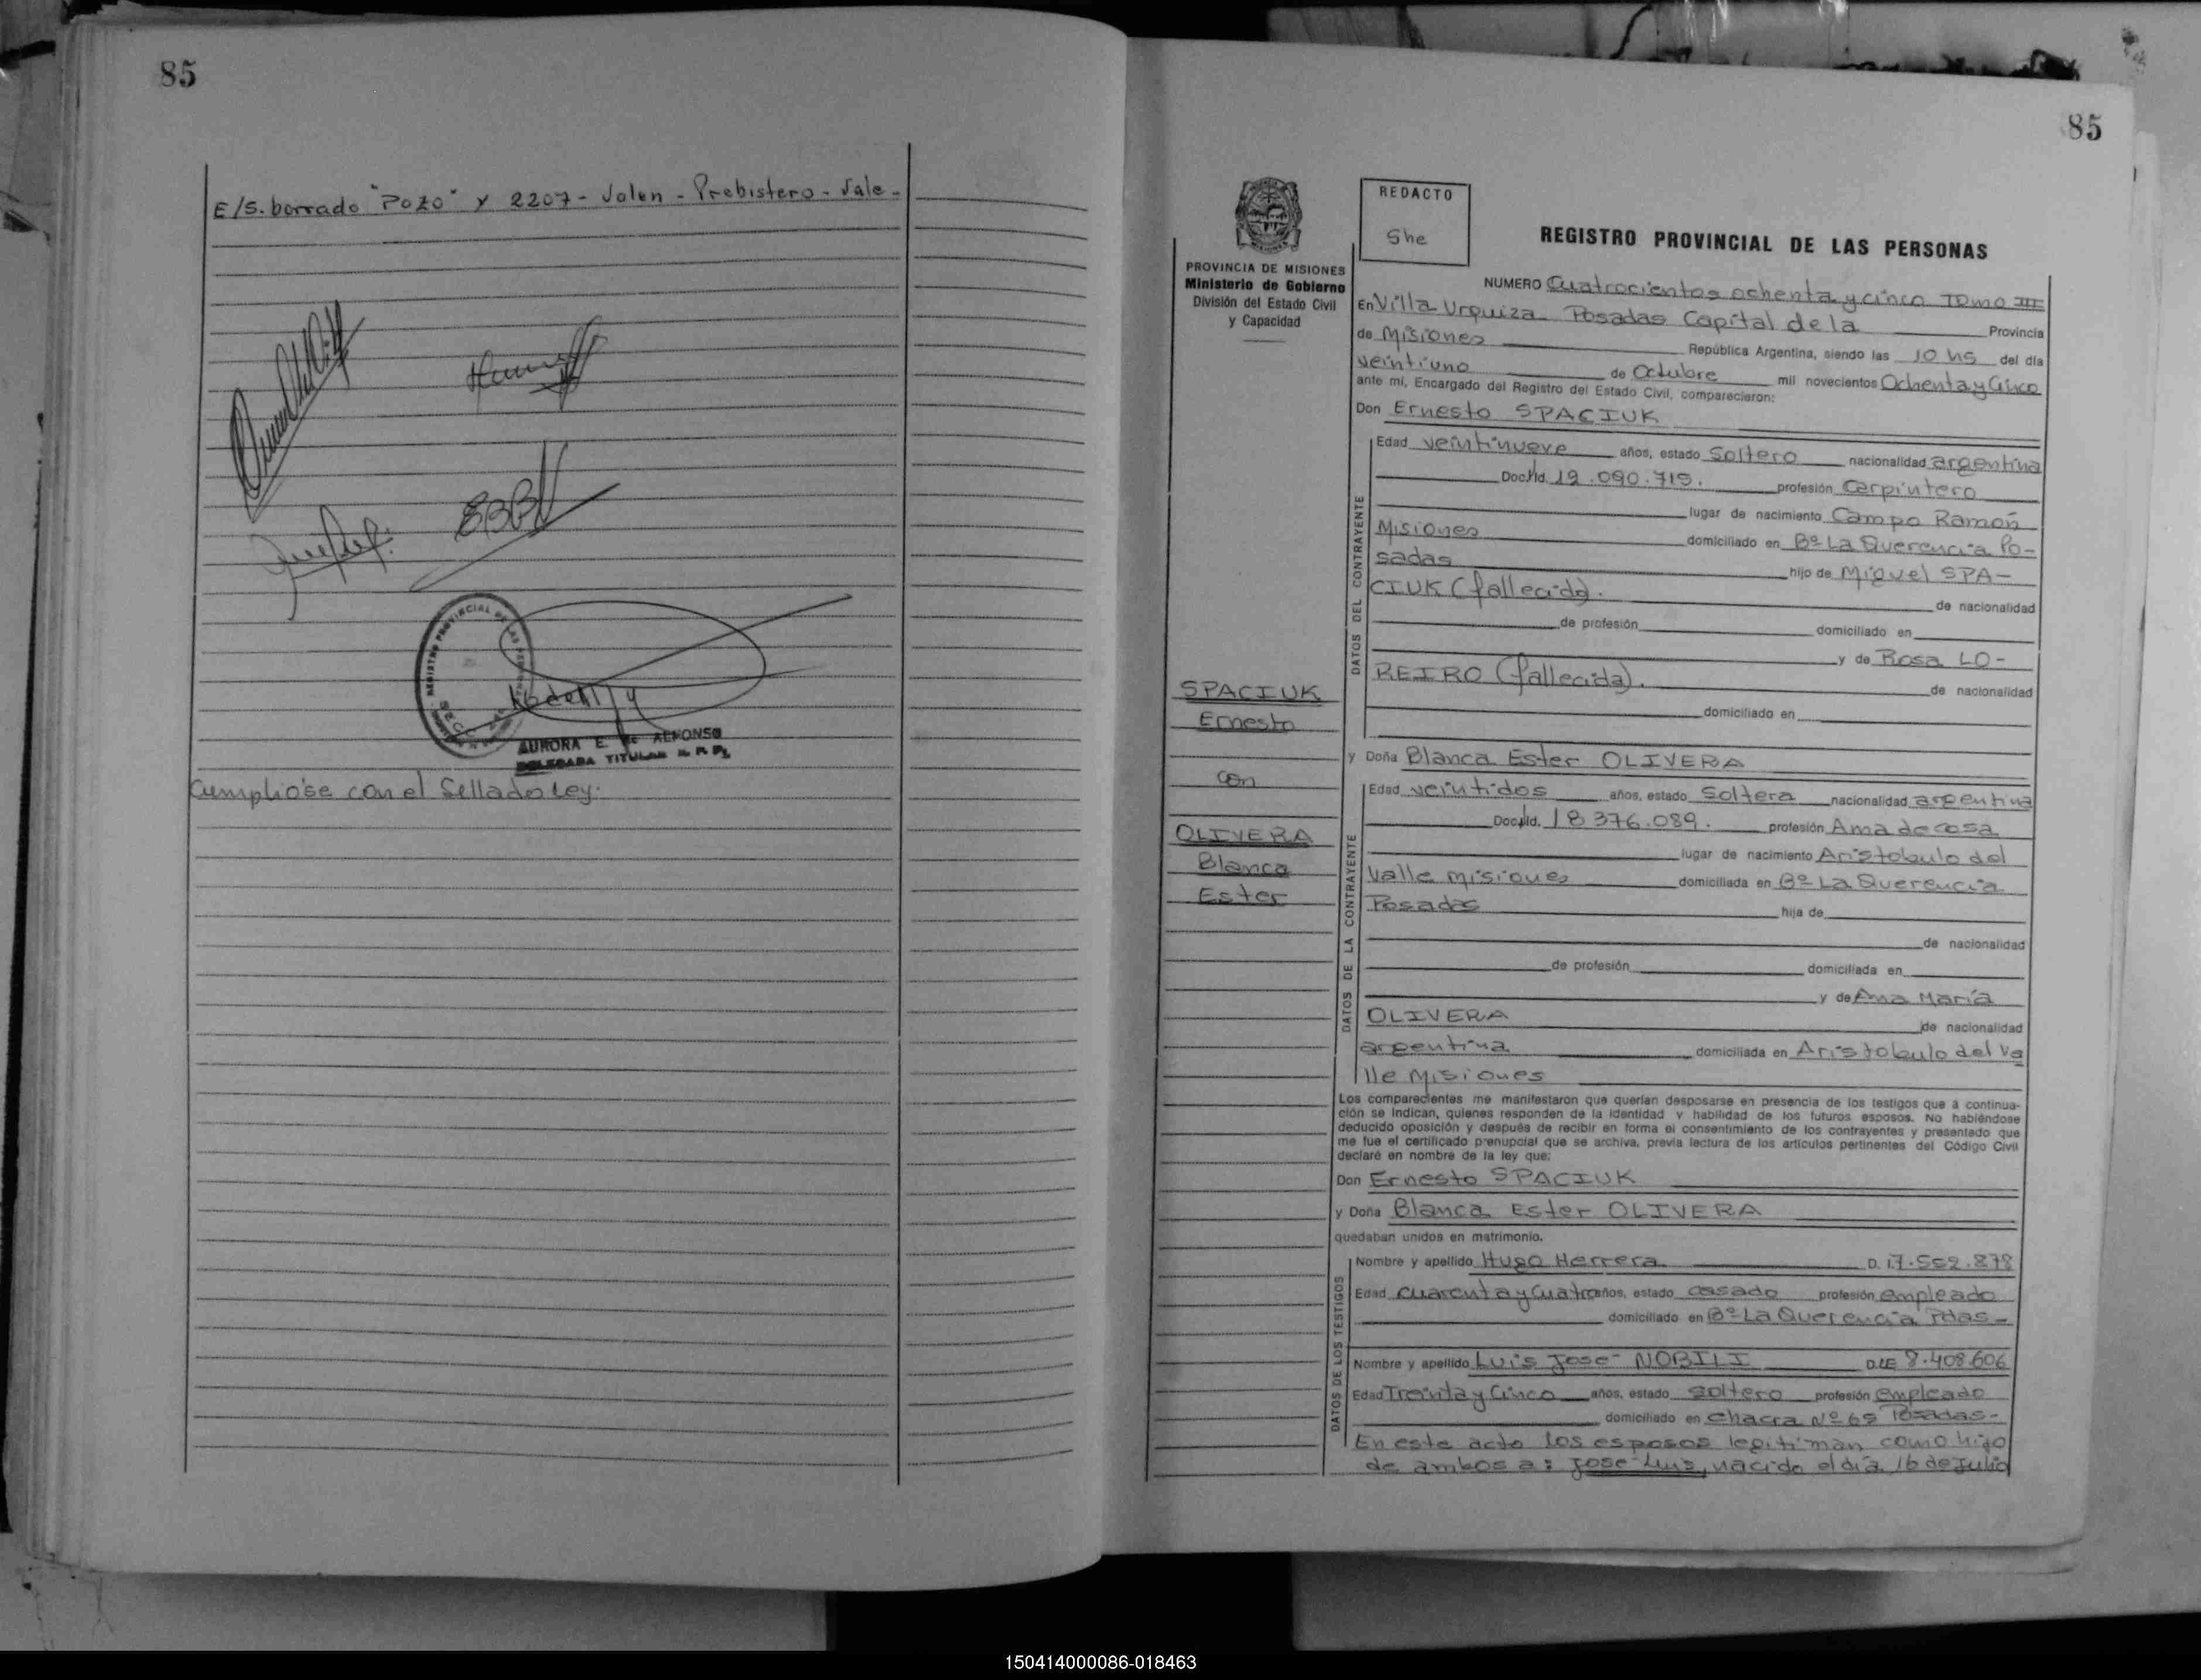 85
E/S. borrado "Pozo" y 2207 - Valen - Prebistero - Vale -
REGISTRO PROVINCIAL DE LAS PERSONAS
AURORA E. de ALFONSO
DELEGADA TITULAR R. P. P.
Cumplióse con el Sellado Ley.
85
REDACTO
She
PROVINCIA DE MISIONES
Ministerio de Gobierno
División del Estado Civil
y Capacidad
SPACIUK
Ernesto
con
OLIVERA
Blanca
Ester
REGISTRO PROVINCIAL DE LAS PERSONAS
NUMERO Cuatrocientos ochenta y cinco Tomo III
En Villa Urquiza Posadas Capital de la Provincia
de Misiones República Argentina, siendo las 10 hs del día
veintiuno de Octubre mil novecientos Ochenta y Cinco
ante mí, Encargado del Registro del Estado Civil, comparecieron:
Don Ernesto SPACIUK
DATOS DEL CONTRAYENTE
Edad veintinueve años, estado Soltero nacionalidad argentina
Doc. Id. 12.090.715. profesión Carpintero
lugar de nacimiento Campo Ramón
Misiones domiciliado en Bº La Querencia Po-
sadas hijo de Miguel SPA-
CIUK (fallecido). de nacionalidad
de profesión domiciliado en
y de Rosa LO-
REIRO (fallecida). de nacionalidad
domiciliado en
y Doña Blanca Ester OLIVERA
DATOS DE LA CONTRAYENTE
Edad veintidos años, estado Soltera nacionalidad argentina
Doc. Id. 18.376.089. profesión Ama de casa
lugar de nacimiento Aristobulo del
Valle Misiones domiciliada en Bº La Querencia
Posadas hija de
de nacionalidad
de profesión domiciliada en
y de Ana María
OLIVERA de nacionalidad
argentina domiciliada en Aristobulo del Va
lle Misiones
Los comparecientes me manifestaron que querían desposarse en presencia de los testigos que a continua-
ción se indican, quienes responden de la identidad y habilidad de los futuros esposos. No habiéndose
deducido oposición y después de recibir en forma el consentimiento de los contrayentes y presentado que
me fue el certificado prenupcial que se archiva, previa lectura de los artículos pertinentes del Código Civil
declaré en nombre de la ley que:
Don Ernesto SPACIUK
y Doña Blanca Ester OLIVERA
quedaban unidos en matrimonio.
DATOS DE LOS TESTIGOS
Nombre y apellido Hugo Herrera D. I. 7.552.878
Edad Cuarenta y Cuatro años, estado casado profesión empleado
domiciliado en Bº La Querencia Pdas -
Nombre y apellido Luis José NOBILI D. LE 8.408.606
Edad Treinta y Cinco años, estado soltero profesión empleado
domiciliado en Chacra Nº 65 Posadas -
En este acto los esposos legitiman como hijo
de ambos a: José Luis, nacido el día 16 de Julio
150414000086-018463